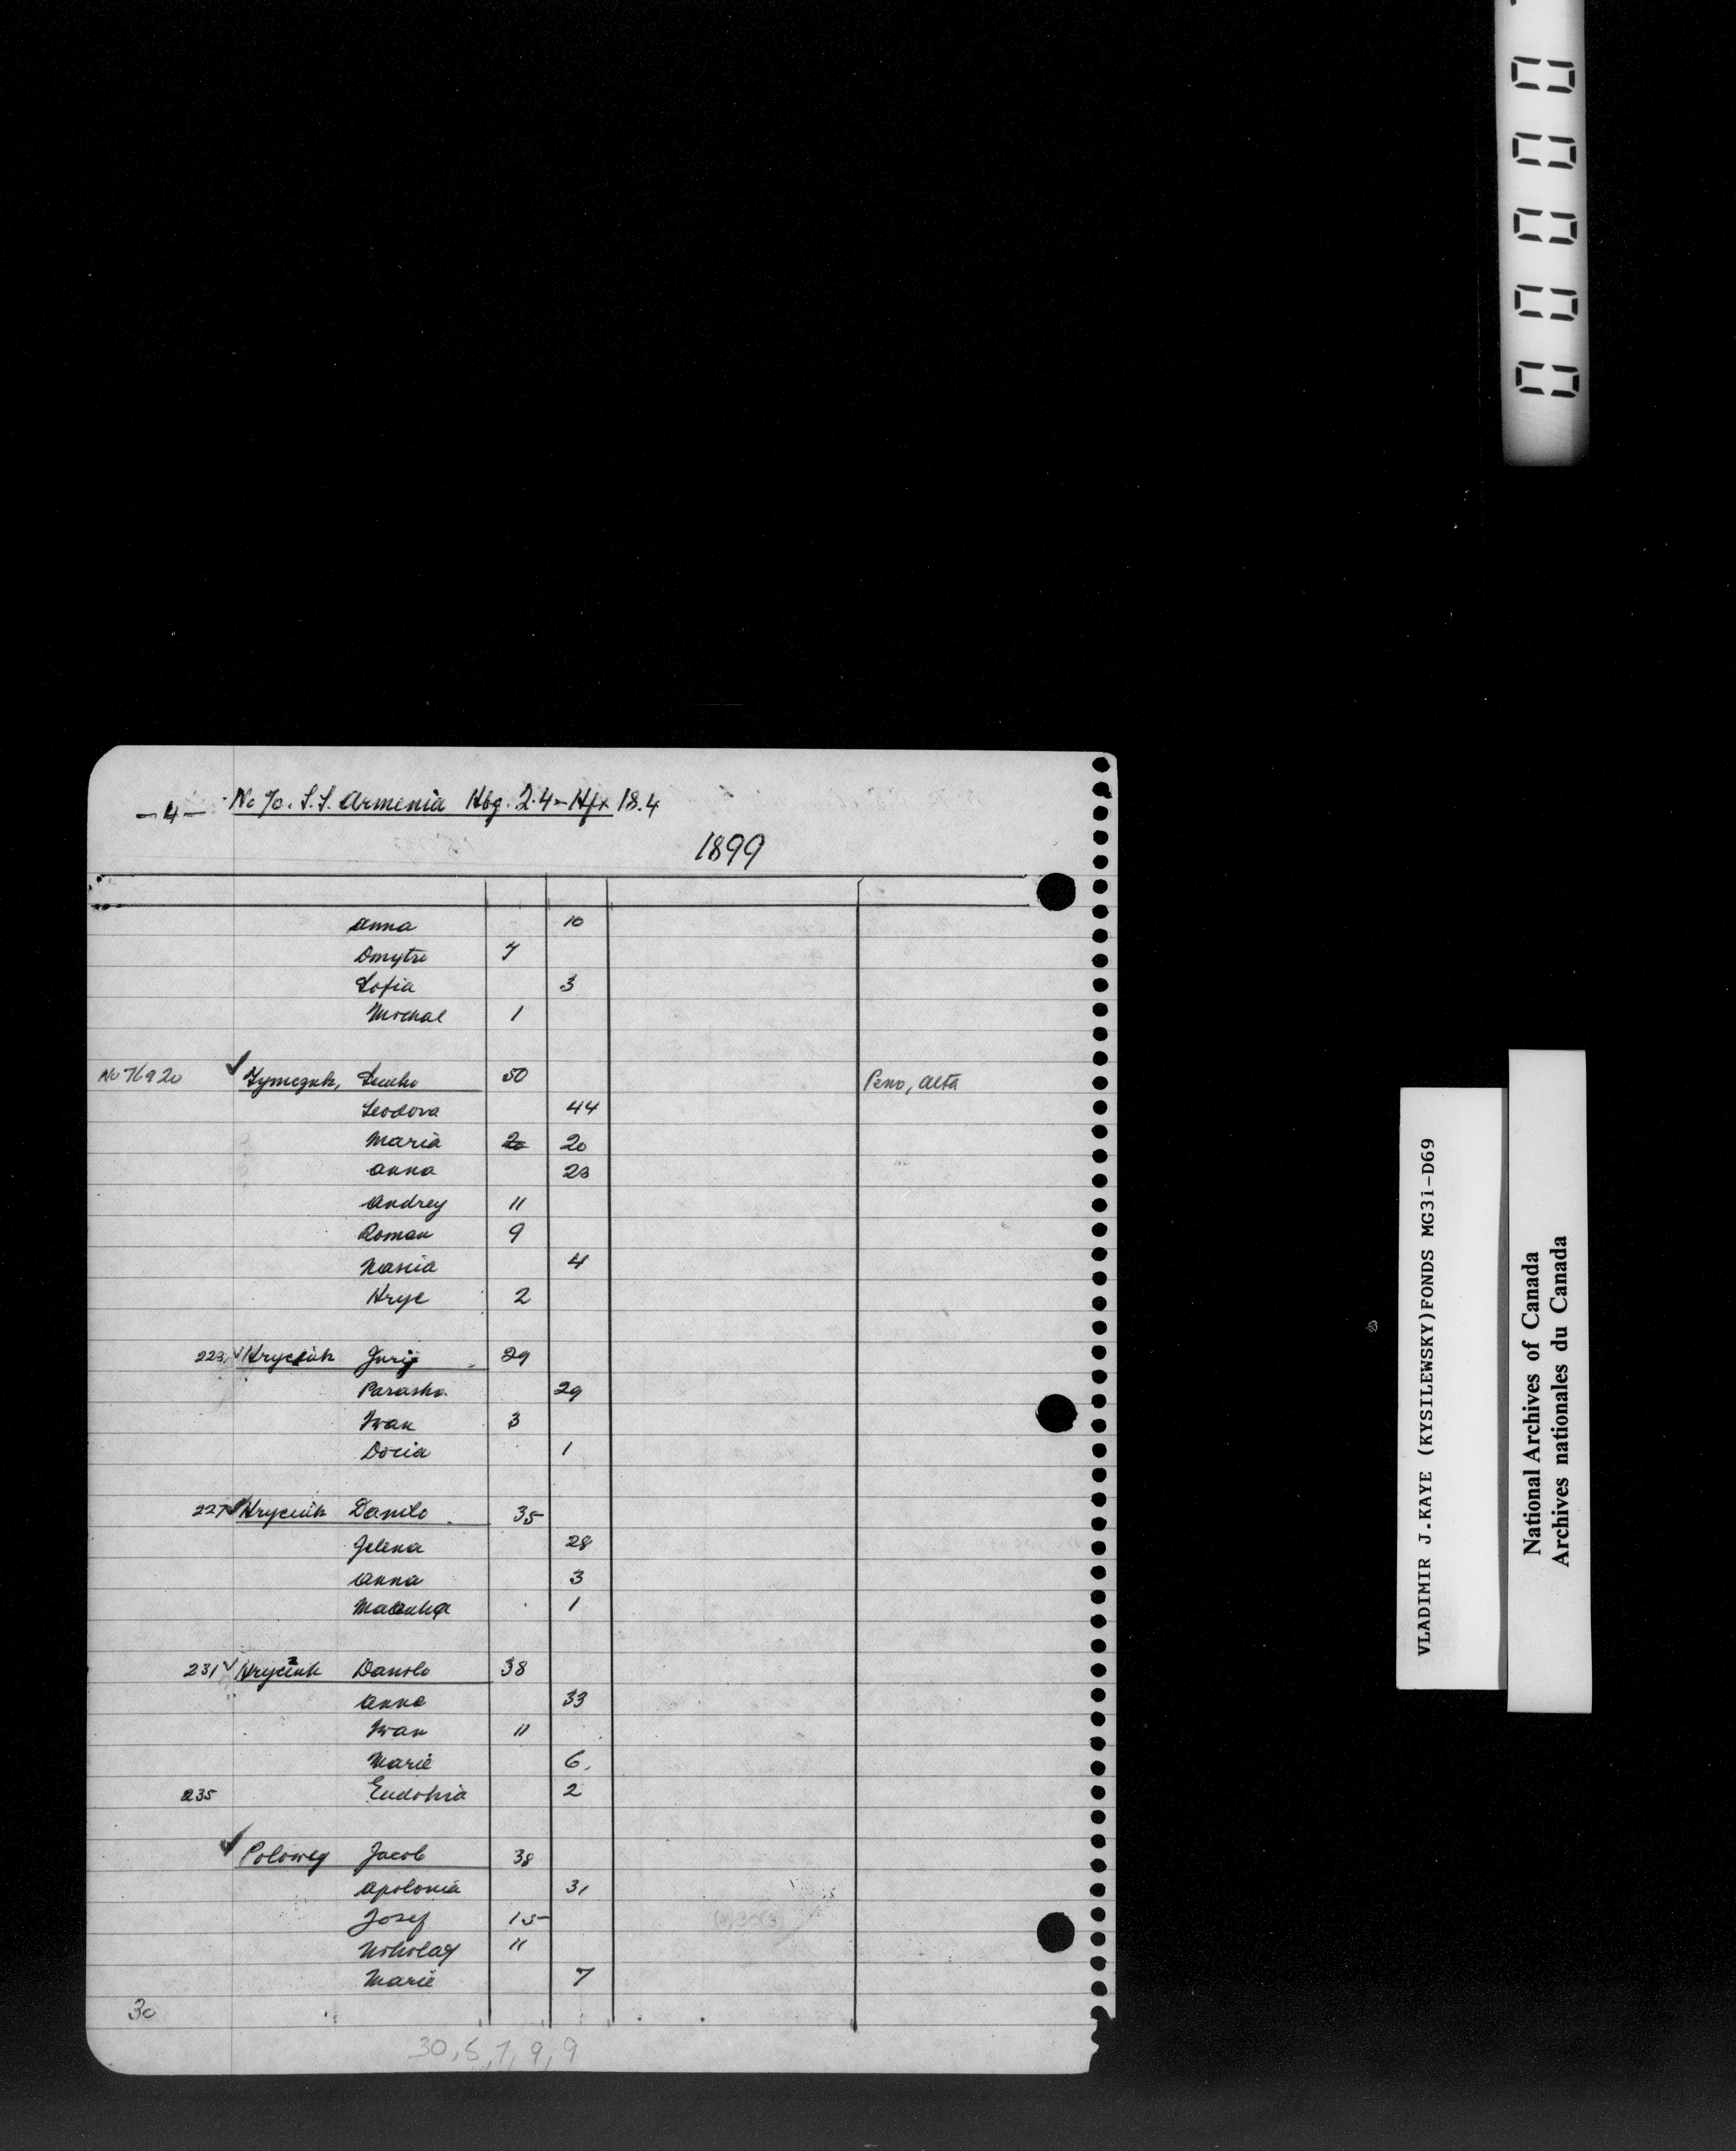 -4- No 70. S.S. Armenia Hbg. 2.4 - Hfx 18.4
1899
Anna 10
Dmytro 7
Sofia 3
Michal 1
No 76920 ✓ Tymczuk, Senko 50 Peno, Alta
Teodora 44
Maria 20 20
Anna 20
Andrey 11
Roman 9
Nascia 4
Hryc 2
223 ✓ Hryciuk Jurij 29
Paraska 29
Iwan 3
Docia 1
227 ✓ Hryciuk Danilo 35
Jelena 28
Anna 3
1
231 ✓ Hryciuk Danilo 38
Anna 33
Iwan 11
Marie 6
235 Eudokia 2
✓ Polowey Jacob 38
Apolonia 31
Josef 15
Nikolay 11
Marie 7
30
30, 5, 7, 9, 9
0 0 0 0 0
VLADIMIR J.KAYE (KYSILEWSKY)FONDS MG31-D69
National Archives of Canada
Archives nationales du Canada